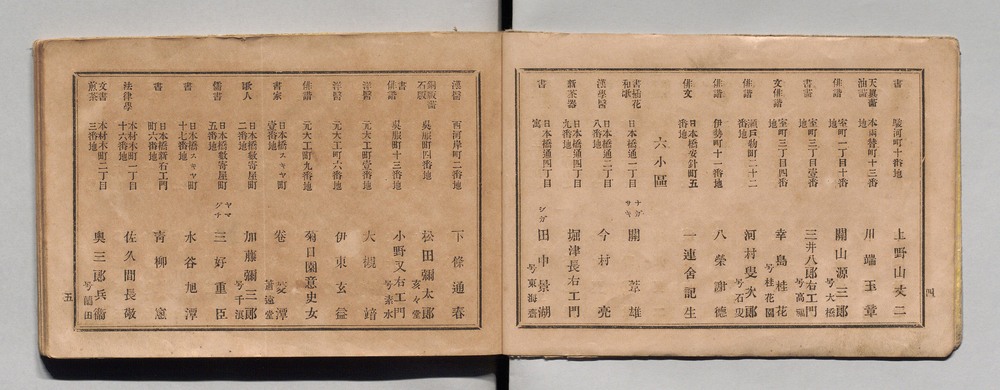 書 駿河町十番地 上野山丈二
天眞術 油畫 本両替町十三番地 川端玉章
俳諧 室町一丁目十番地 關山源三郎 号大橋
書畫 室町三丁目壹番地 三井八郎右エ門 号高福
文俳諧 室町三丁目四番地 幸島桂花 号桂花園
俳諧 瀬戸物町二十二番地 河村叟次郎 号石叟
俳諧 伊勢町十一番地 八榮謝徳
俳文 日本橋安針町五番地 一連舍記生
六小區
書插花 和歌 日本橋通一丁目 ナガサキ 關荃雄
漢學醫 日本橋通二丁目八番地 今村亮
新茶器 日本橋通四丁目九番地 堀津長右エ門
書 日本橋通四丁目寓 シガ 田中景湖 号東海齋
四
漢醫 西河岸町二番地 下條通春
銅版畫 石版 呉服町四番地 松田彌太郎 玄々堂
書 俳諧 呉服町十三番地 小野又右エ門 号素水
洋醫 元大工町壹番地 大槻靖
洋醫 元大工町六番地 伊東玄益
俳諧 元大工町九番地 菊日園意史女
書家 日本橋スキヤ町壹番地 卷菱潭
歌人 日本橋數寄屋町二番地 加藤彌三郎 号千浪
儒書 日本橋數寄屋町五番地 ヤマシナ 三好重臣
書 日本橋スキヤ町十七番地 水谷旭潭
書 日本橋新右エ門町六番地 青柳憲
法律學 本材木町一丁目十六番地 佐久間長敬
文書 煎茶 本材木町二丁目三番地 奥三郎兵衞
五